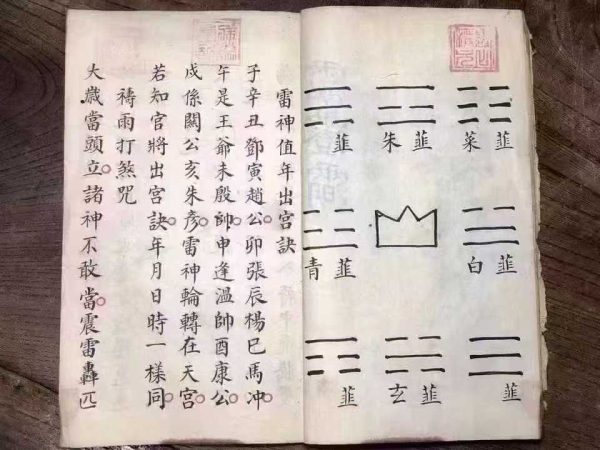 韮
朱韮
菜韮
青韮
白韮
韮
玄韮
韮
雷神值年出宫訣
子辛丑鄧寅趙公卯張辰楊巳馬冲
午是王爺未殷帥申逢溫帥酉康公
戍係關公亥朱彥雷神輪轉在天宫
若知官將出宫訣年月日時一樣同
禱雨打煞咒
大歲當頭立諸神不敢當震雷轟匹